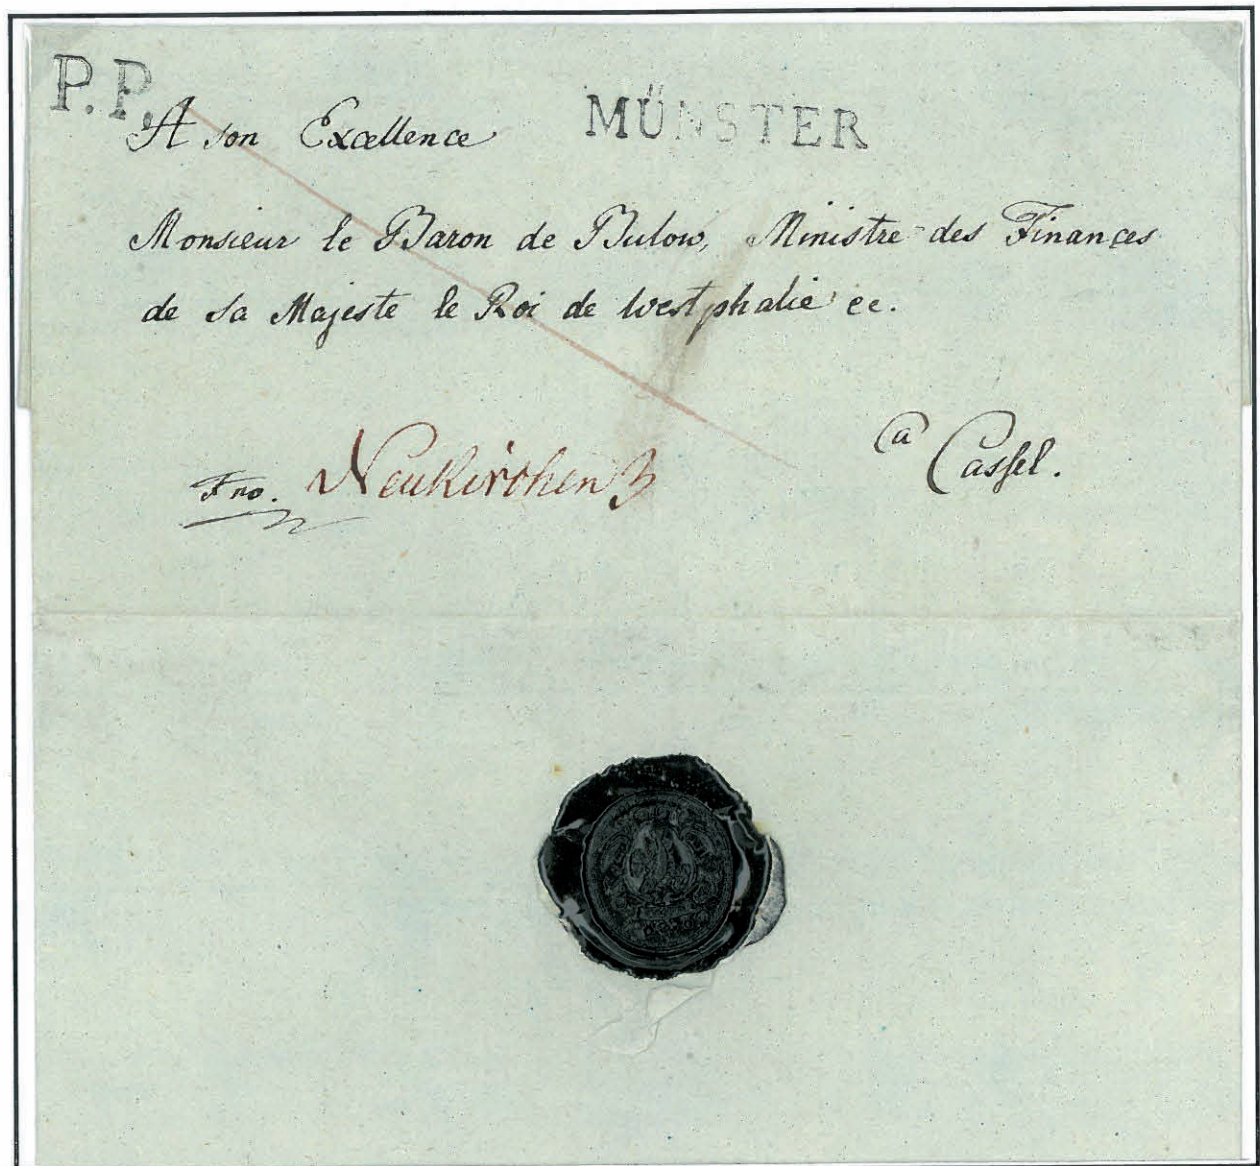 P.P.
A son Excellence MÜNSTER
Monsieur le Baron de Bulow, Ministre des Finances
de sa Majeste le Roi de Westphalie ec.
a Cassel.
Fno. Neukirchen 3